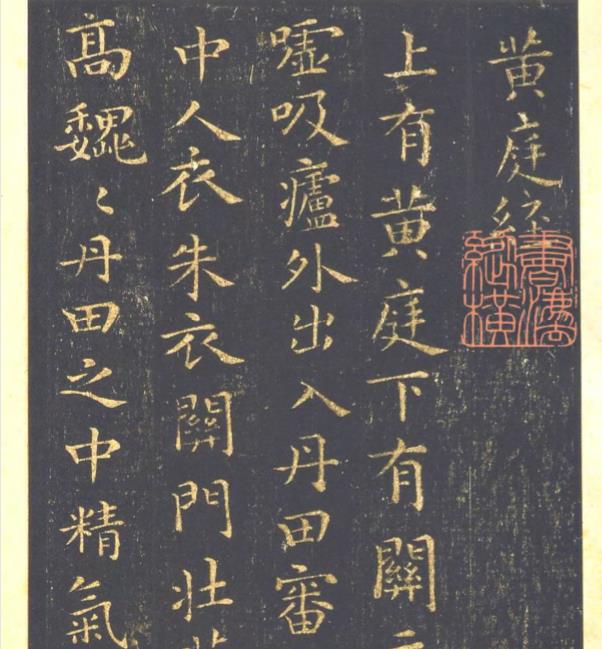 黄庭經
上有黄庭下有關
嘘吸廬外出入丹田審
中人衣朱衣關門壯
髙魏〻丹田之中精氣